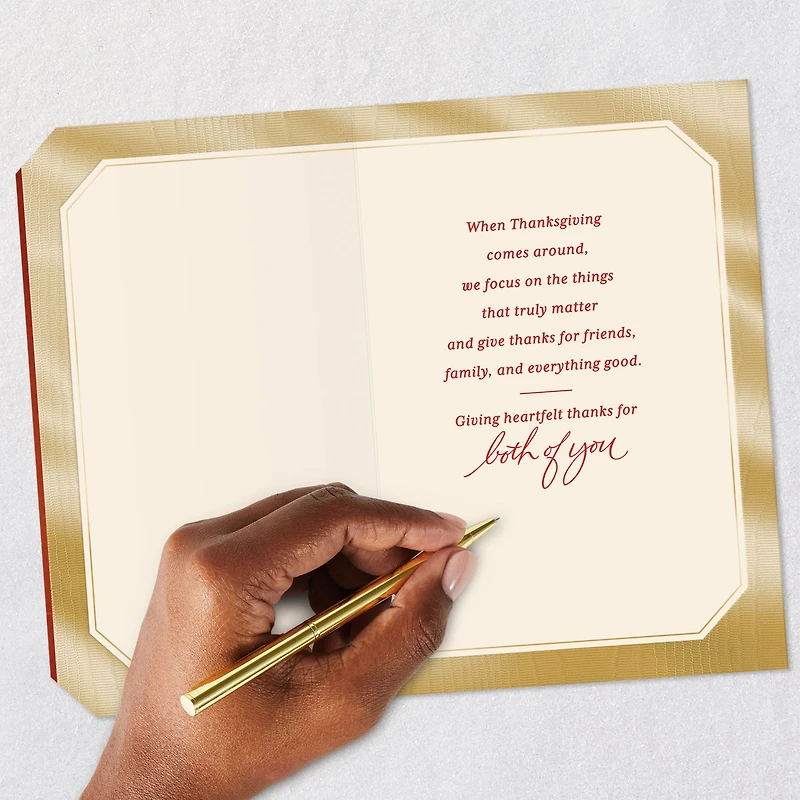 When Thanksgiving
comes around,
we focus on the things
that truly matter
and give thanks for friends,
family, and everything good.
Giving heartfelt thanks for
both of you